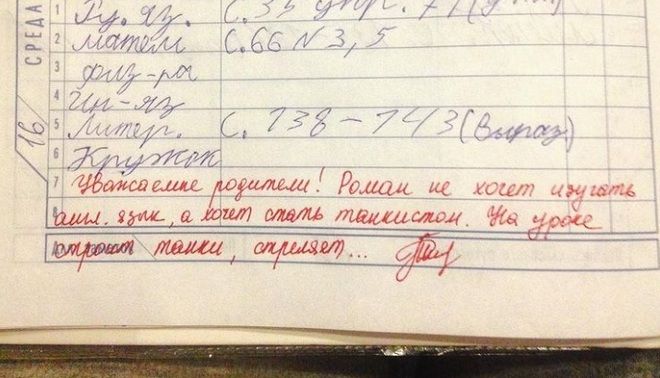 СРЕДА
16
1 Ру. яз. С. 35 упр. 71 (у
2 матем С. 66 N 3, 5
3 физ-ра
4 Ин-яз
5 Литер. С. 138 – 143 (Выраз)
6 Кружок
7 Уважаемые родители! Роман не хочет изучать
8 англ. язык, а хочет стать танкистом. На уроке
строит танки, стреляет...